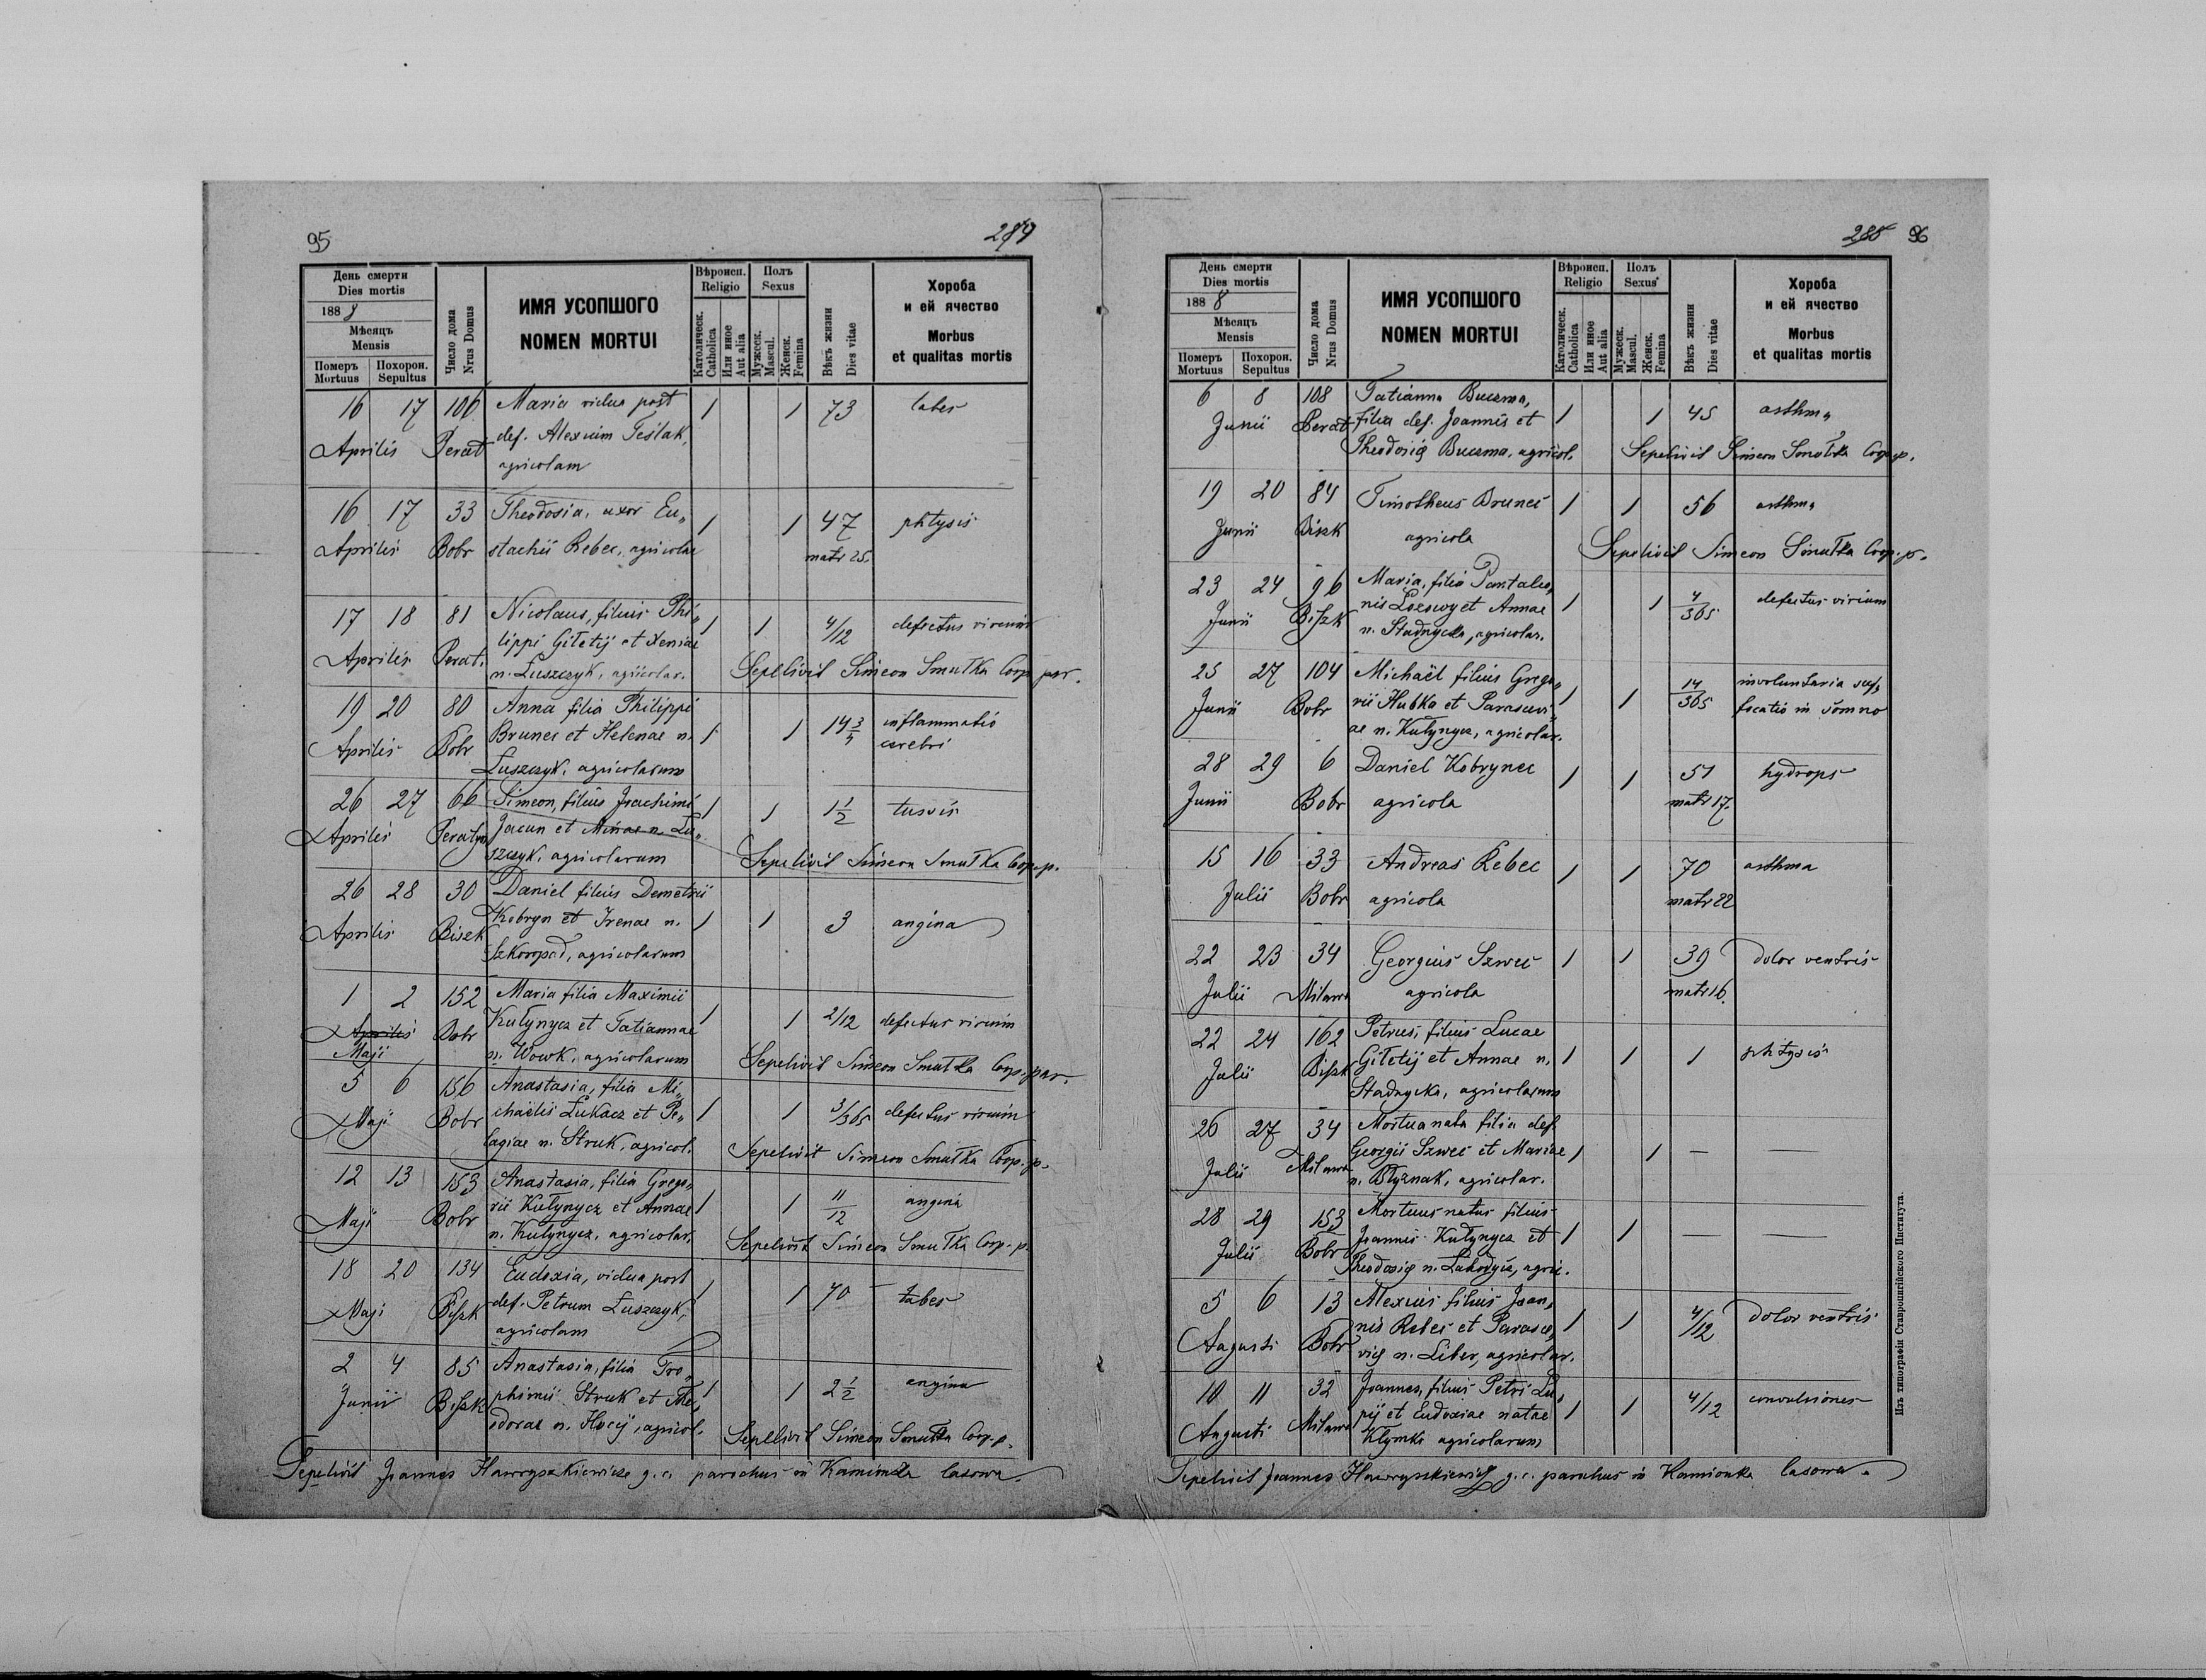 95
289
День смерти
Dies mortis
1888
Мѣсяцъ
Mensis
Померъ
Mortuus
Похорон.
Sepultus
Число дома
Nrus Domus
ИМЯ УСОПШОГО
NOMEN MORTUI
Вѣроисп.
Religio
Католическ.
Catholica
Или иное
Aut alia
Полъ
Sexus
Мужеск.
Mascul.
Женск.
Femina
Вѣкъ жизни
Dies vitae
Хороба
и ей ячество
Morbus
et qualitas mortis
16 17 106 Maria vidua post 1 1 73 tabes
Aprilis Perat def. Alexium Teslak,
agricolam
16 17 33 Theodosia, uxor Eu„ 1 1 47 phtysis
Aprilis Bobr stachii Rebec, agricolae matr 25.
17 18 81 Nicolaus, filius Phi„ 1 1 4/12 defectus virium
Aprilis Perat. lippi Giletij et Xeniae
n. Łuszczyk, agricolar. Sepelivit Simeon Smutka Coop. par.
19 20 80 Anna filia Philippi 1 1 14 3/4 inflammatio
Aprilis Bobr Brunec et Helenae n. cerebri
Łuszczyk, agricolarum
26 27 66 Simeon, filius Joachimi 1 1 1 1/2 tussis
Aprilis Peratyn Jacun et Minae n. Łu„
szczyk, agricolarum Sepelivit Simeon Smutka Coop. p.
26 28 30 Daniel filius Demetrii 1 1 3 angina
Aprilis Bisek Kobryn et Irenae n.
Szkoropad, agricolarum
1 2 152 Maria filia Maximii 1 1 2/12 defectus virium
Aprilis Bobr Kułynycz et Tatiannae
Maji n. Wowk, agricolarum Sepelivit Simeon Smutka Coop. par.
5 6 156 Anastasia, filia Mi„ 1 1 3/365 defectus virium
Maji Bobr chaëlis Łukacz et Pe„
lagiae n. Struk, agricol. Sepelivit Simeon Smutka Coop. p.
12 13 153 Anastasia, filia Grego„ 1 1 11/12 angina
Maji Bobr rii Kułynycz et Annae
n. Kułynycz, agricolar. Sepelivit Simeon Smutka Coop. p.
18 20 134 Eudoxia, vidua post 1 1 70 tabes
Maji Biszk def. Petrum Łuszczyk,
agricolam
2 4 85 Anastasia, filia Tro„ 1 1 2 1/2 angina
Junii Biszk phimii Struk et The„
dorae n. Hucij, agricol. Sepelivit Simeon Smutka Coop. p.
Sepelivit Joannes Hawryszkiewicz g. c. parochus in Kamionka lasowa.
285 96
День смерти
Dies mortis
1888
Мѣсяцъ
Mensis
Померъ
Mortuus
Похорон.
Sepultus
Число дома
Nrus Domus
ИМЯ УСОПШОГО
NOMEN MORTUI
Вѣроисп.
Religio
Католическ.
Catholica
Или иное
Aut alia
Полъ
Sexus
Мужеск.
Mascul.
Женск.
Femina
Вѣкъ жизни
Dies vitae
Хороба
и ей ячество
Morbus
et qualitas mortis
6 8 108 Tatianna Buczma, 1 1 45 asthma
Junii Perat filia def. Joannis et
Theodosię Buczma, agricol. Sepelivit Simeon Smutka Coop. p.
19 20 84 Timotheus Brunec 1 1 56 asthma
Junii Biszk agricola
Sepelivit Simeon Smutka Coop. p.
23 24 96 Maria, filia Pantaleo„ 1 1 4/365 defectus virium
Junii Biszk nis Łozowy et Annae
n. Stadnycka, agricolar.
25 27 104 Michaël filius Grego„ 1 1 14/365 involuntaria suf„
Junii Bobr rii Hubka et Parascevi„ focatio in somno
ae n. Kułynycz, agricolar.
28 29 6 Daniel Kobrynec 1 1 51 hydrops
Junii Bobr agricola matr 17.
15 16 33 Andreas Rebec 1 1 70 asthma
Julii Bobr agricola matr 22
22 23 34 Georgius Szwec 1 1 39 dolor ventris
Julii Milawa agricola matr 16.
22 24 162 Petrus, filius Lucae 1 1 1 phtysis
Julii Biszk Giletij et Annae n.
Stadnycka, agricolarum
26 27 34 Mortua nata filia def. 1 1 — —
Julii Milawa Georgii Szwec et Mariae
n. Błyznak, agricolar.
28 29 153 Mortuus natus filius 1 1 — —
Julii Bobr Joannis Kułynycz et
Theodosię n. Łahodyn, agric.
5 6 13 Alexius filius Joan„ 1 1 4/12 dolor ventris
Augusti Bobr nis Rebec et Parasce„
vię n. Liber, agricolar.
10 11 32 Joannes, filius Petri Łu„ 1 1 4/12 convulsiones
Augusti Milawa pij et Eudoxiae natae
Kłymko agricolarum
Sepelivit Joannes Hawryszkiewicz g. c. parochus in Kamionka lasowa.
Изъ типографіи Ставропигійского Института.